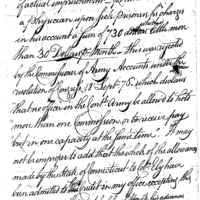 of actual imprisonment
a physician upon sick Prisoners, for charges
in his account a sum of 730 dollars little more
than 30 Dollars p Month. This was rejected
by the Commissioners of Army Accounts under the
resolution of Congress 18 Sept 78 which declares
that no officer in the Contl Army be allowed to hold
more than one Commission, or to receive pay
but in one capacity at the same time. It may
not be improper to add that the whole of the allowances
made by the State of Connecticut to
been admitted to his credit in my office excepting this